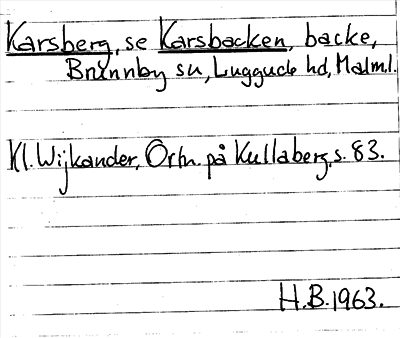 Karsberg, se Karsbacken, backe,
Brunnby sn, Luggude hd, Malml.
Kl. Wijkander, Ortn. på Kullaberg, s. 83.
H.B. 1963.